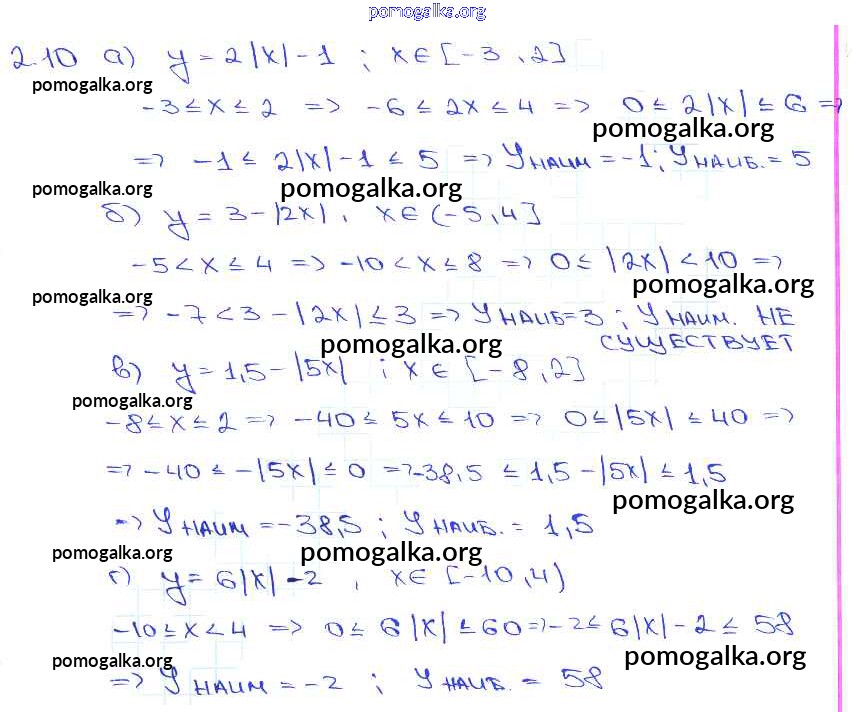 pomogalka.org
2.10 а) y = 2|x| - 1 ; x ∈ [-3, 2]
pomogalka.org
-3 ≤ x ≤ 2 => -6 ≤ 2x ≤ 4 => 0 ≤ 2|x| ≤ 6 =>
pomogalka.org
=> -1 ≤ 2|x| - 1 ≤ 5 => y наим = -1; y наиб. = 5
pomogalka.org pomogalka.org
б) y = 3 - |2x|, x ∈ (-5, 4]
-5 < x ≤ 4 => -10 < x ≤ 8 => 0 ≤ |2x| < 10 =>
pomogalka.org
pomogalka.org
=> -7 < 3 - |2x| ≤ 3 => y наиб = 3 ; y наим. НЕ
СУЩЕСТВУЕТ
pomogalka.org
в) y = 1,5 - |5x| ; x ∈ [-8, 2]
pomogalka.org
-8 ≤ x ≤ 2 => -40 ≤ 5x ≤ 10 => 0 ≤ |5x| ≤ 40 =>
=> -40 ≤ -|5x| ≤ 0 => -38,5 ≤ 1,5 - |5x| ≤ 1,5
pomogalka.org
=> y наим = -38,5 ; y наиб. = 1,5
pomogalka.org pomogalka.org
г) y = 6|x| - 2 , x ∈ [-10, 4)
-10 ≤ x < 4 => 0 ≤ 6|x| ≤ 60 => -2 ≤ 6|x| - 2 ≤ 58
pomogalka.org pomogalka.org
=> y наим = -2 ; y наиб. = 58